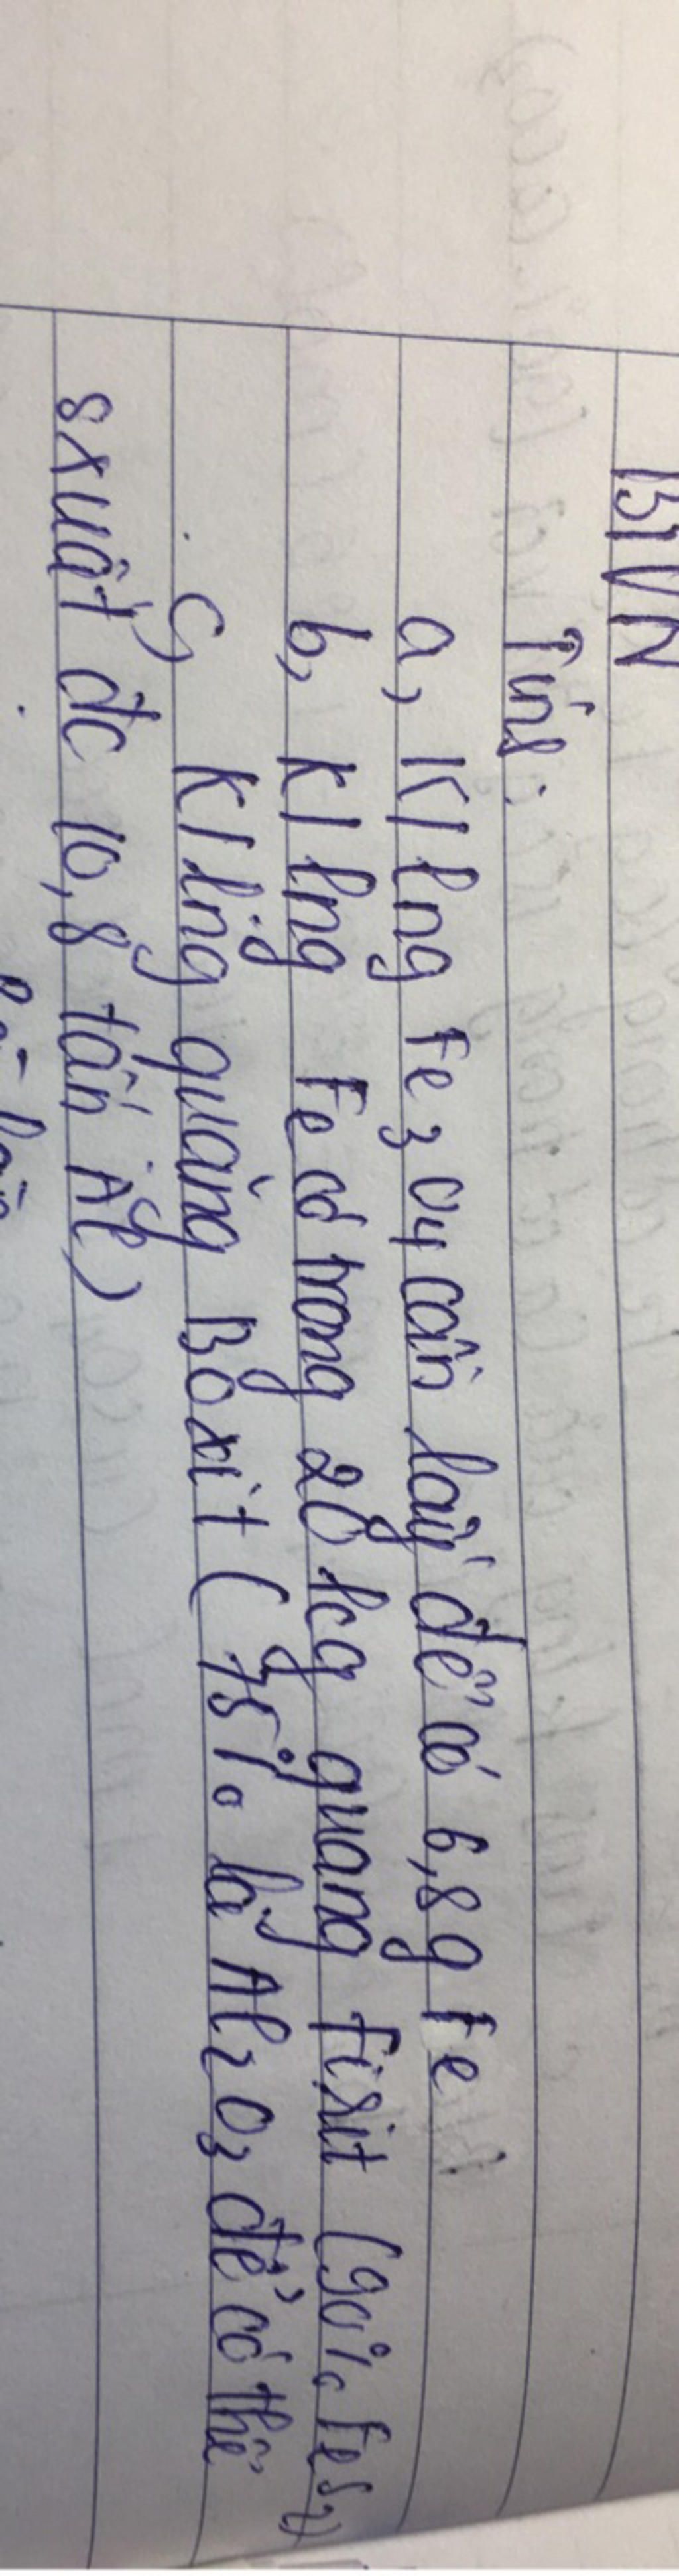 BTVN
Tính:
a, Kllng Fe3O4 cần lấy để có 6,8g Fe
b, Kl lng Fe có trong 20 kg quặng firit (90% FeS2)
c, Kl lng quặng Boxit (75% là Al2O3 để có thể
sxuất đc 10,8 tấn Al)